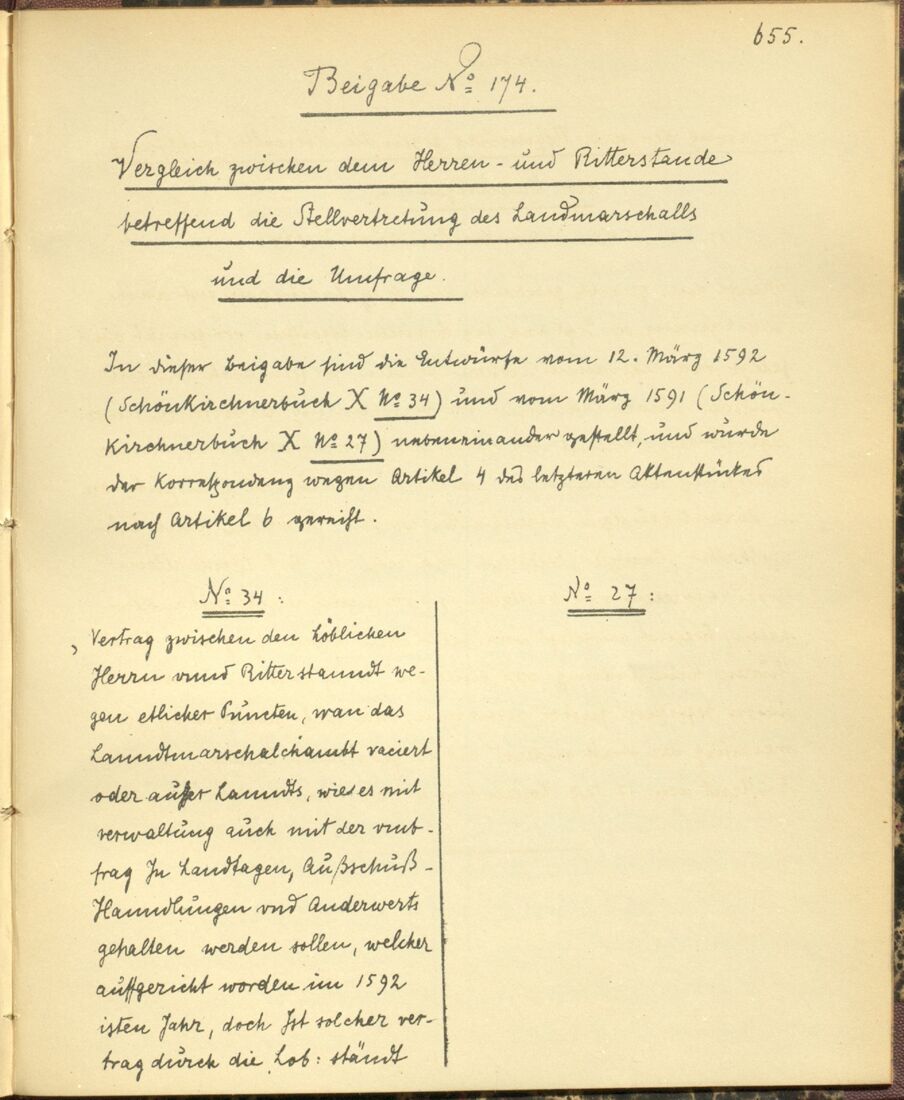 655.
Beigabe No 174.
Vergleich zwischen dem Herren- und Ritterstande
betreffend die Stellvertretung des Landmarschalls
und die Umfrage.
In dieser Beigabe sind die Entwürfe vom 12. März 1592
(Schönkirchnerbuch X No 34) und vom März 1591 (Schön-
kirchnerbuch X No 27) nebeneinander gestellt, und wurde
der Korrespondenz wegen Artikel 4 des letzteren Aktenstückes
nach Artikel 6 gereiht.
No 34:
„Vertrag zwischen den Löblichen
Herrn vnnd Ritterstanndt we-
gen etlicher Puncten, wan das
Lanndtmarschalchambt vaciert
oder außer Lanndts, wie es mit
verwaltung auch mit der vmb-
frag In Landtagen, Außschuß-
Hanndlungen vnd Anderwerts
gehalten werden sollen, welcher
auffgericht worden im 1592
isten Jahr, doch Ist solcher ver-
trag durch die Lob: ständt
No 27: